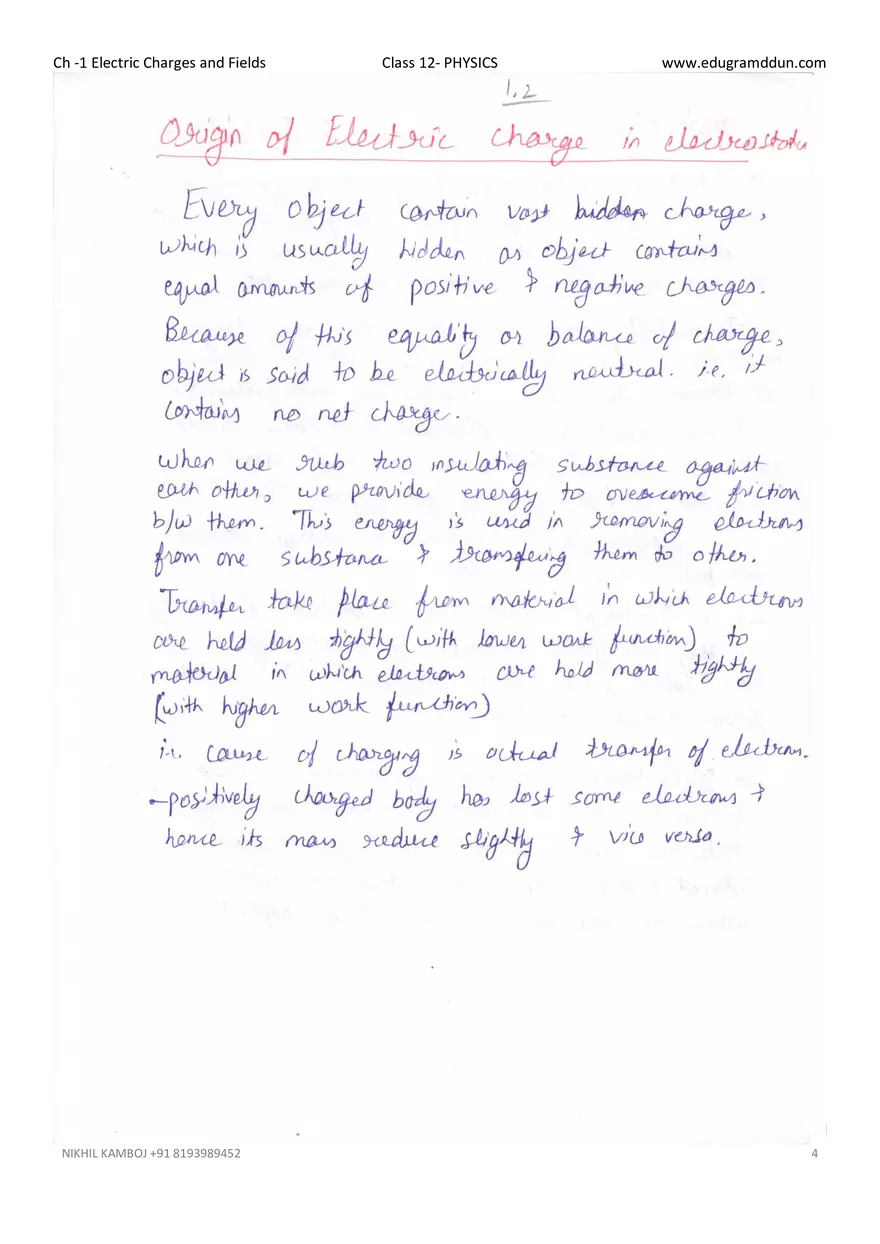 Ch -1 Electric Charges and Fields Class 12- PHYSICS www.edugramddun.com
1.2
Origin of Electric charge in electrostatic
Every object contain vast hidden charge,
which is usually hidden as object contains
equal amounts of positive & negative charges.
Because of this equality or balance of charge,
object is said to be electrically neutral. i.e. it
contains no net charge.
When we rub two insulating substance against
each other, we provide energy to overcome friction
b/w them. This energy is used in removing electrons
from one substance & transfering them to other.
Transfer take place from material in which electrons
are held less tightly (with lower work function) to
material in which electrons are held more tightly
(with higher work function)
i.e. cause of charging is actual transfer of electron.
-positively charged body has lost some electrons &
hence its mass reduce slightly & vice versa.
NIKHIL KAMBOJ +91 8193989452 4